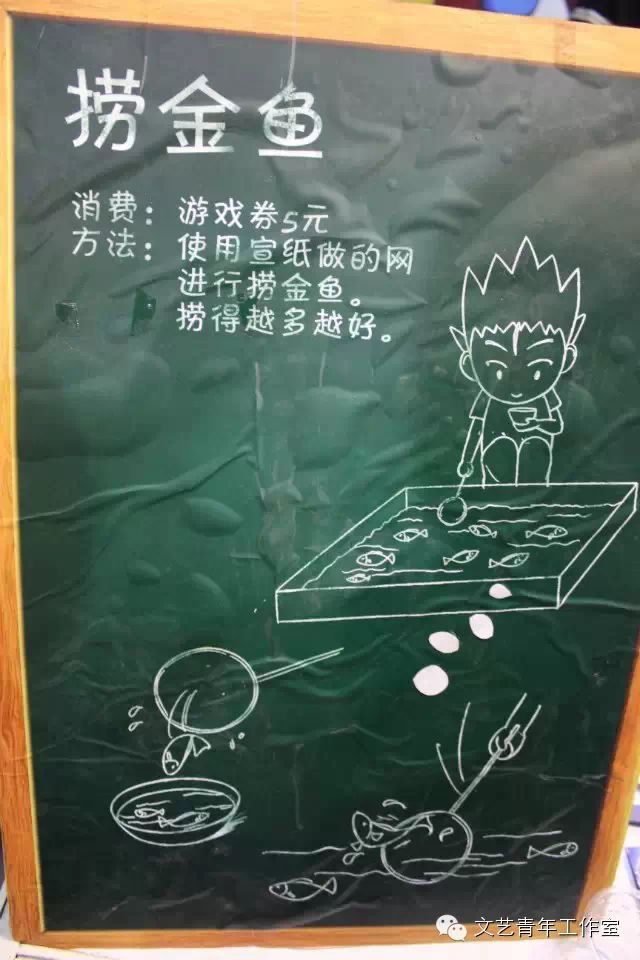 捞金鱼
消费：游戏券5元
方法：使用宣纸做的网
进行捞金鱼。
捞得越多越好。
文艺青年工作室